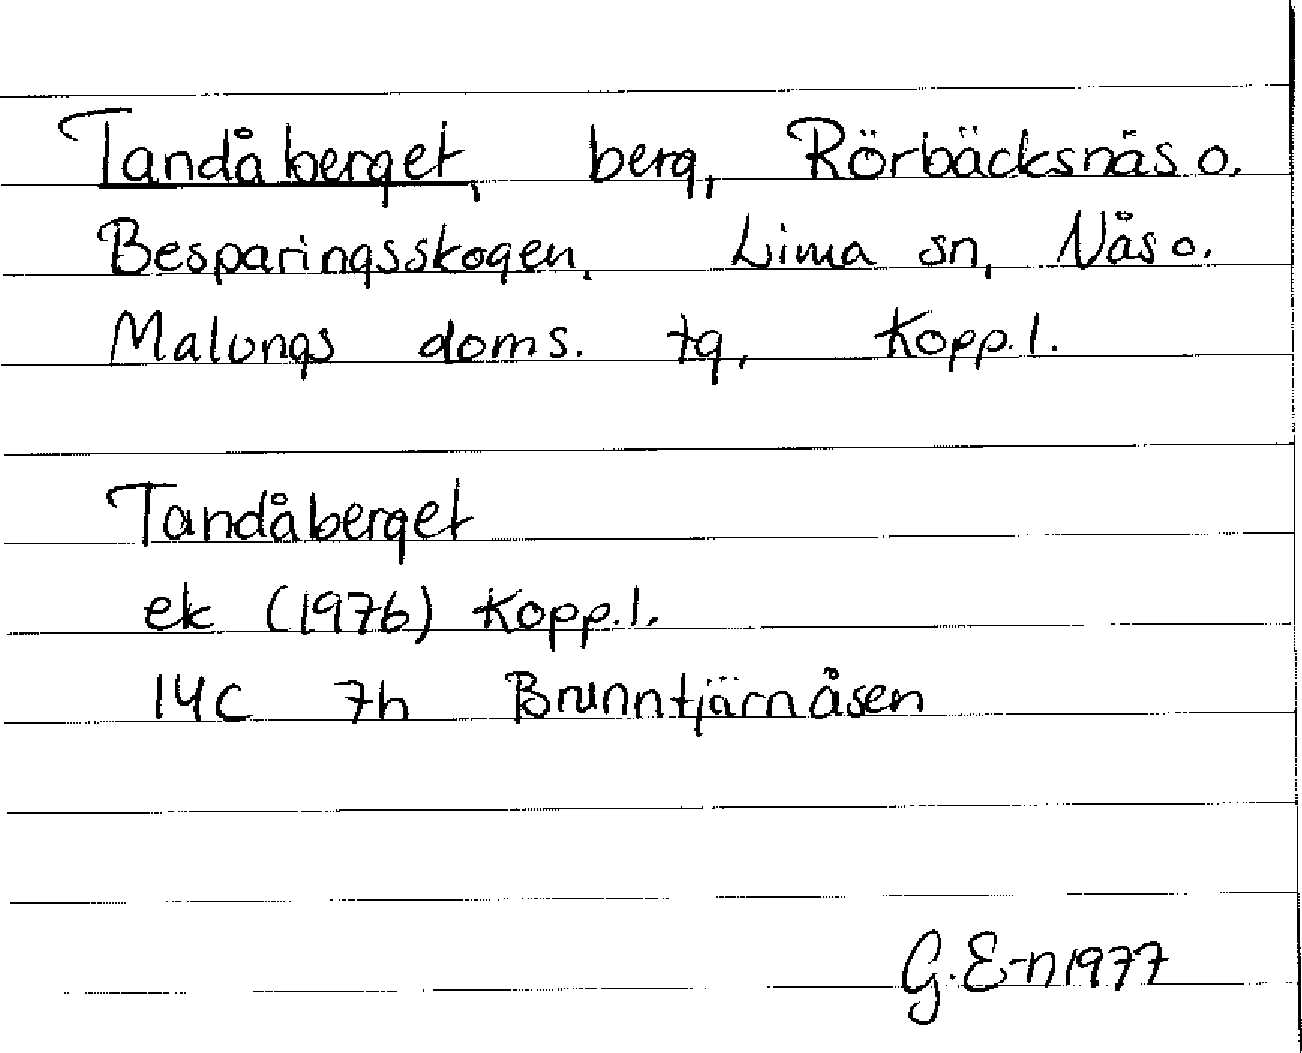 Tandåberget, berg, Rörbäcksnäs o.
Besparingsskogen. Lima sn, Nås o.
Malungs doms. tg, Kopp.l.
Tandåberget
ek (1976) Kopp.l.
14C 7h Brunntjärnåsen
G.E-n 1977